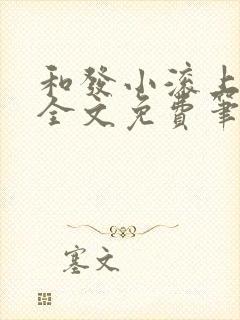 和發小滾上
全文免費筆
塞文